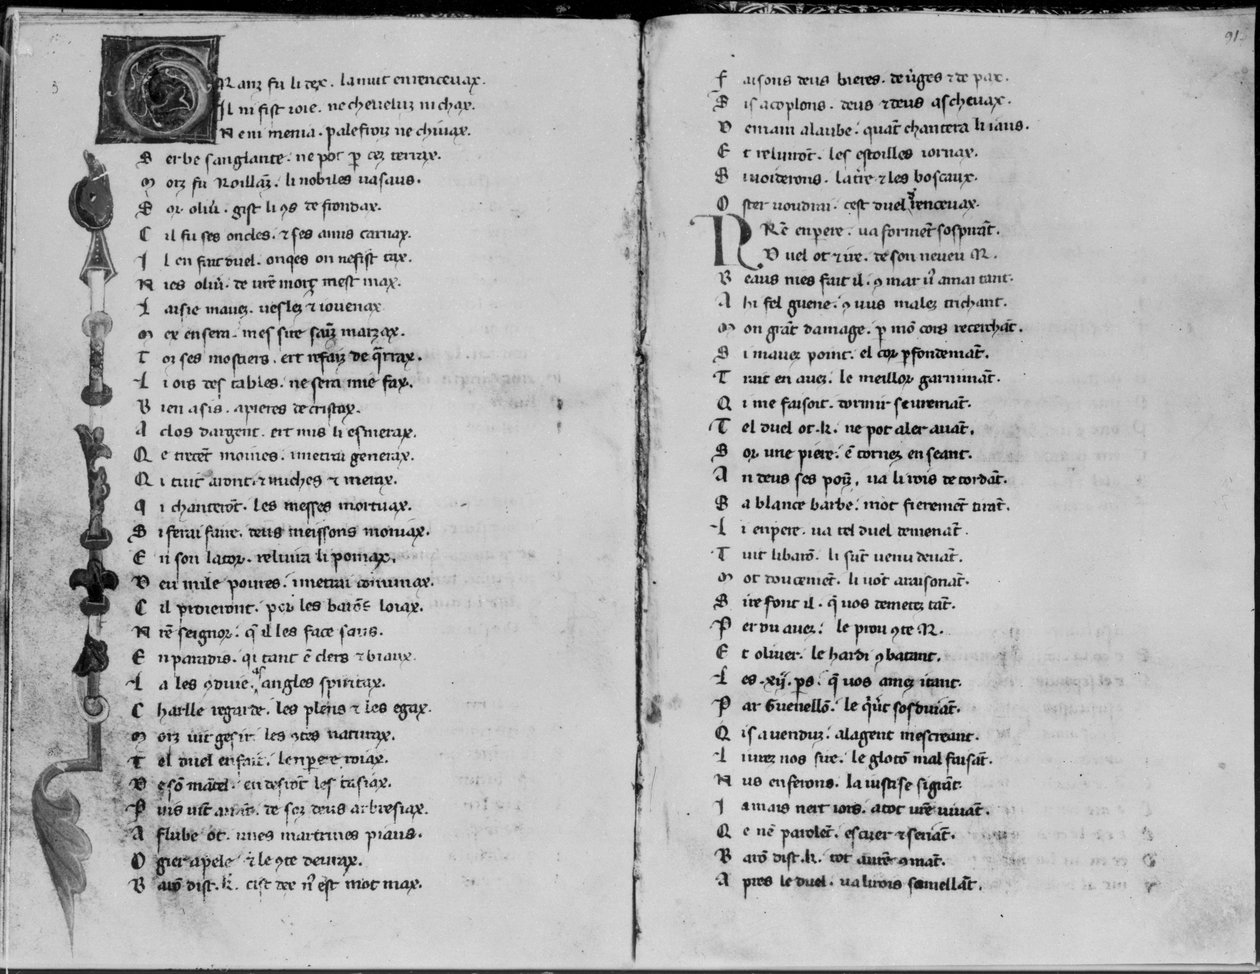 Ranz fu li dex. la nuit en rencevax.
Il ni fist ioie. ne chevelux ni chax.
N e ni menia. palefroiz ne chivax.
B erbe sanglante. ne pot p cez terrax.
M orz fu Rollaz. li nobiles vasaus.
S or oliu. gist li 9s de frondax.
C il fu ses oncles. ⁊ ses amis carnax.
I l en fait duel. onqes on ne fist tax.
N ies oliu. de ure mort mest max.
L aisie mauez. ueslez ⁊ iouenax
M ex en sera. mes sire saiz marzax.
T oz ses mostiers. ert refaiz de qrrax.
L i ois des tables. ne sera mie fax.
B ien asis. a pieres de cristax.
A clos dargent. ert mis li esmerax.
Q e trecet moines. i metrai generax.
Q i tuit auront. ⁊ miches ⁊ merax.
Q i chanterot. les messes mortuax.
S i ferai faire. deus meissons moniax.
E n son lator. reluira li pomax.
D eu mile poures. i metrai comunax.
C il prieront. por les baros loiax.
N re seignor. q il les face saus.
E n paradis. qi tant e clers ⁊ biaux.
L a les 9duie. angles spiritax.
C harlle regarde. les pleins ⁊ les egax.
M orz uit gesir. les 9tes naturax.
T el duel en fait. lenperere roiax.
D e so matel. en desrot les tasiax.
P uis uit auat. de soz deus arbresiax.
A flube ot. unes martrines piaus.
O gier apele ⁊ le 9te deurax.
B aro dist. k. cist dex n est mot max.
91
F aisons deus bieres. de uges ⁊ de pax.
S i s acoplons. deus ⁊ deus as chevax.
D emain alaube. quat chantera li iaus.
E t reluirot. les estoilles iornax.
S i uoiderons. la tre ⁊ les boscaux.
O ster uoudrai. cest duel rencevax.
R Re enpere. ua forment sospirat.
D uel ot ⁊ ire. de son neueu R.
B eaus nies fait il. 9 mar u amai tant.
A hi fel guene. 9 uus malez trichant.
M on grat damage. p mo cors recerchat.
S i mauez point. el cor pfondemat.
T rait en auez. le meillor garnimat.
Q i me faisoit. dormir seuremat.
T el duel ot .k. ne pot aler auat.
S or une piere. e tornez en seant.
A n deus ses poiz. ua li rois detordat.
S a blance barbe. mot fierement tirat.
L i enpere. ua tel duel demenat.
T uit li baro. li sut uenu deuat.
M ot doucemet. li uot araisonat.
S ire font il. q uos demetez tat.
P erdu auez. le prou 9te R.
E t oliuer. le hardi 9batant.
L es .xij. ps. q uos amez itant.
P ar Guenello. le qiut sosduiat.
Q i s a uenduz. alagent mescreant.
L iurez nos sire. le gloto mal faisat.
N us en ferons. la iustise sigrat.
I amais nert iors. a tot ure uiuat.
Q e ne parolet. escuer ⁊ seriat.
B aro dist .k. tot autre 9mat.
A pres le duel. ua li rois somellat.